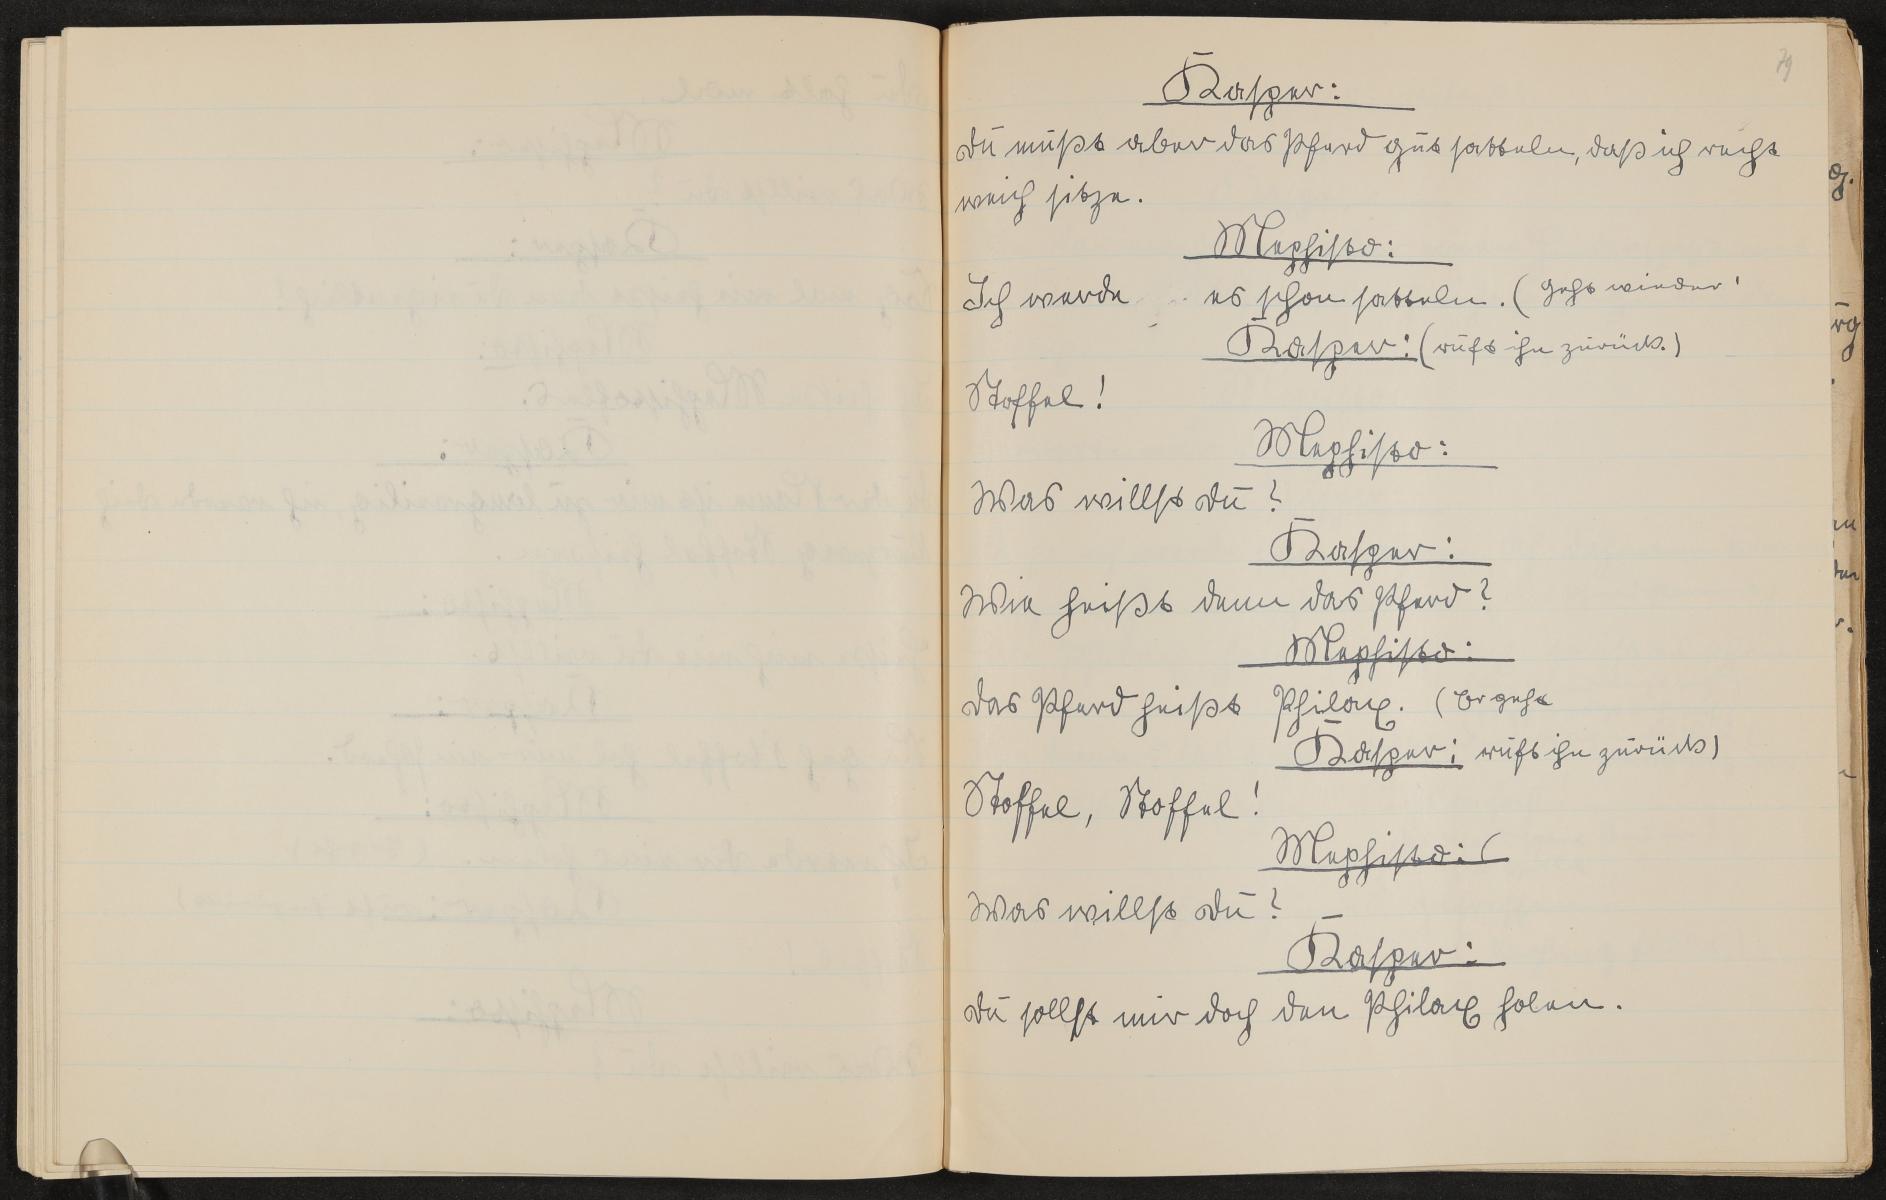 79
Kasper:
Du mußt aber das Pferd gut satteln, daß ich recht
weich sitze.
Mephisto:
Ich werde es schon satteln. (geht wieder
Kasper: (ruft ihn zurück.)
Stoffel!
Mephisto:
Was willst du?
Kasper:
Wie heißt denn das Pferd?
Mephisto:
Das Pferd heißt Philax. (Er geht
Kasper: ruft ihn zurück)
Stoffel, Stoffel!
Mephisto: (
Was willst du?
Kasper:
Du sollst mir doch den Philax holen.